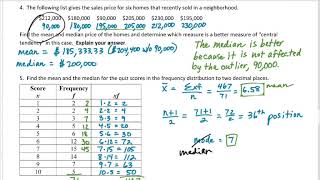 4. The following list gives the sales price for six homes that recently sold in a neighborhood.
$212,000 $180,000 $190,000 $205,000 $235,000 $195,000
90,000, 180,000, 195,000, 205,000, 212,000, 235,000
Find the mean and median price of the homes and determine which measure is a better measure of "central
tendency" in this case. Explain your answer.
mean = $185,333.33 ($204,400 w/o 90,000)
median = $200,000
The median is better
because it is not affected
by the outlier, 90,000.
5. Find the mean and median for the quiz scores in the frequency distribution to two decimal places.
Score Frequency
x f xf
1 2 2 1·2 = 2
2 2 4 2·2 = 4
5 6 18 5·6 = 30
6 12 30 6·12 = 72
7 15 45 7·15 = 105
8 14 8·14 = 112
9 7 9·7 = 63
10 5 10·5 = 50
x̄ = Σxf / n = 467 / 71 = 6.58 mean
n+1 / 2 = 71+1 / 2 = 72 / 2 = 36th position
mode = 7
median